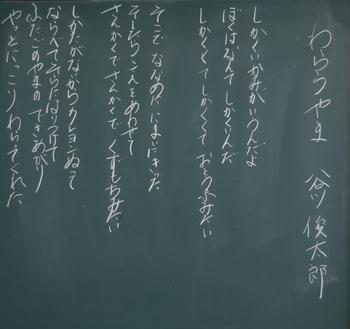 わらうやま　谷川俊太郎
しかくいかみがいうんだよ
ぼくはなんてしかくいんだ
しかくくてしかくくて おとうふみたい
そこで ななめに にまいにきった
そしたらこえをあわせて
さんかくでさんかくで くずもちみたい
しかたがないからクレヨンぬって
ならべてそらにはりつけて
ふたごのやまのできあがり
やっとにっこりわらってくれた